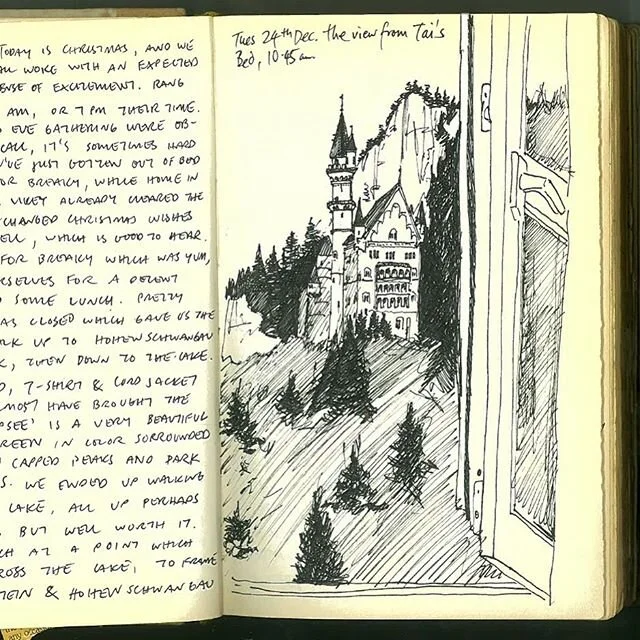 TODAY IS CHRISTMAS, AND WE
ALL WOKE WITH AN EXPECTED
SENSE OF EXCITEMENT. RANG
AM, OR 7 PM THEIR TIME.
EVE GATHERING WERE OB-
CALL, IT'S SOMETIMES HARD
'VE JUST GOTTEN OUT OF BED
FOR BREAKY, WHILE HOME IN
ALREADY CLEARED THE
CHANGED CHRISTMAS WISHES
WELL, WHICH IS GOOD TO HEAR.
FOR BREAKY WHICH WAS YUM,
RSELVES FOR A DECENT
SOME LUNCH. PRETTY
AS CLOSED WHICH GAVE US THE
RK UP TO HOHENSCHWANGAU
K, THEN DOWN TO THE LAKE.
D, T-SHIRT & CORD JACKET
MOST HAVE BROUGHT THE
PSEE' IS A VERY BEAUTIFUL
GREEN IN COLOR SORROUNDED
CAPPED PEAKS AND DARK
S. WE ENDED UP WALKING
LAKE, ALL UP PERHAPS
BUT WELL WORTH IT.
CH AT A POINT WHICH
ROSS THE LAKE, TO FRAME
TEIN & HOHENSCHWANGAU
any occa
Tues 24th Dec. the view from Tai's
Bed, 10.45am